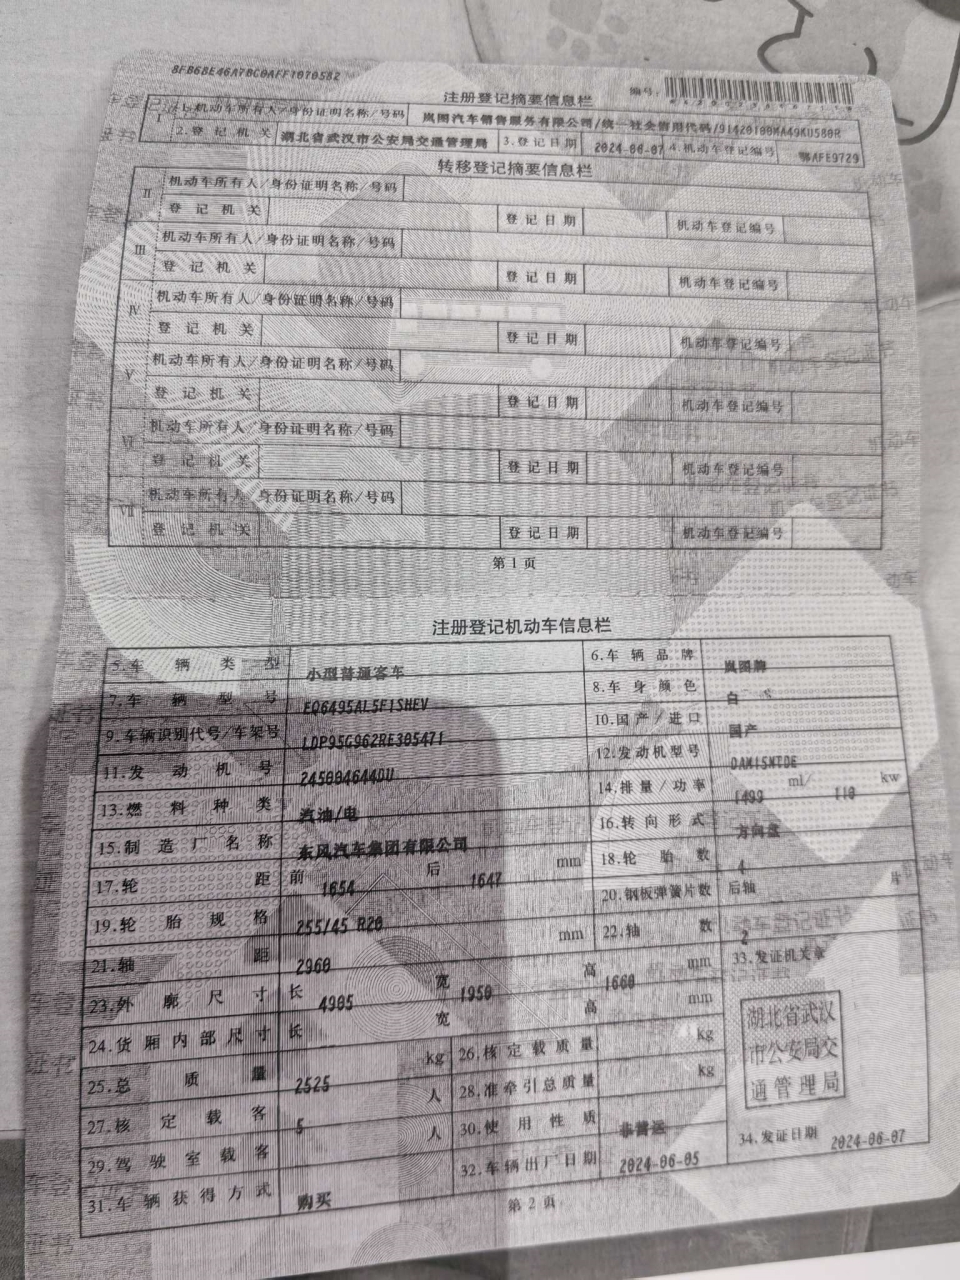 8FB6BE46A7BC0AFF1070582
编号:
注册登记摘要信息栏
I 1.机动车所有人/身份证明名称/号码 岚图汽车销售服务有限公司/统一社会信用代码/91420100MA49KU580R
2.登记机关 湖北省武汉市公安局交通管理局 3.登记日期 2024-06-07 4.机动车登记编号 鄂AFE9729
转移登记摘要信息栏
II 机动车所有人/身份证明名称/号码
登记机关 登记日期 机动车登记编号
III 机动车所有人/身份证明名称/号码
登记机关 登记日期 机动车登记编号
IV 机动车所有人/身份证明名称/号码
登记机关 登记日期 机动车登记编号
V 机动车所有人/身份证明名称/号码
登记机关 登记日期 机动车登记编号
VI 机动车所有人/身份证明名称/号码
登记机关 登记日期 机动车登记编号
VII 机动车所有人/身份证明名称/号码
登记机关 登记日期 机动车登记编号
第1页
注册登记机动车信息栏
5.车辆类型 小型普通客车 6.车辆品牌 岚图牌
7.车辆型号 EQ6495AL5F1SHEV 8.车身颜色 白
9.车辆识别代号/车架号 LDP95G962RE305471 10.国产/进口 国产
11.发动机号 245004644DU 12.发动机型号 DAM15NTDE
13.燃料种类 汽油/电 14.排量/功率 1499 ml/ 110 kw
15.制造厂名称 东风汽车集团有限公司 16.转向形式 方向盘
17.轮距 前 1654 后 1647 mm 18.轮胎数 4
19.轮胎规格 255/45 R20 20.钢板弹簧片数 后轴 片
21.轴距 2960 mm 22.轴数 2
23.外廓尺寸 长 4905 宽 1950 高 1660 mm 33.发证机关章
24.货厢内部尺寸 长 宽 高 mm
25.总质量 2525 kg 26.核定载质量 kg
27.核定载客 5 人 28.准牵引总质量 kg
29.驾驶室载客 人 30.使用性质 非营运
31.车辆获得方式 购买 32.车辆出厂日期 2024-06-05
湖北省武汉
市公安局交
通管理局
34.发证日期 2024-06-07
第2页